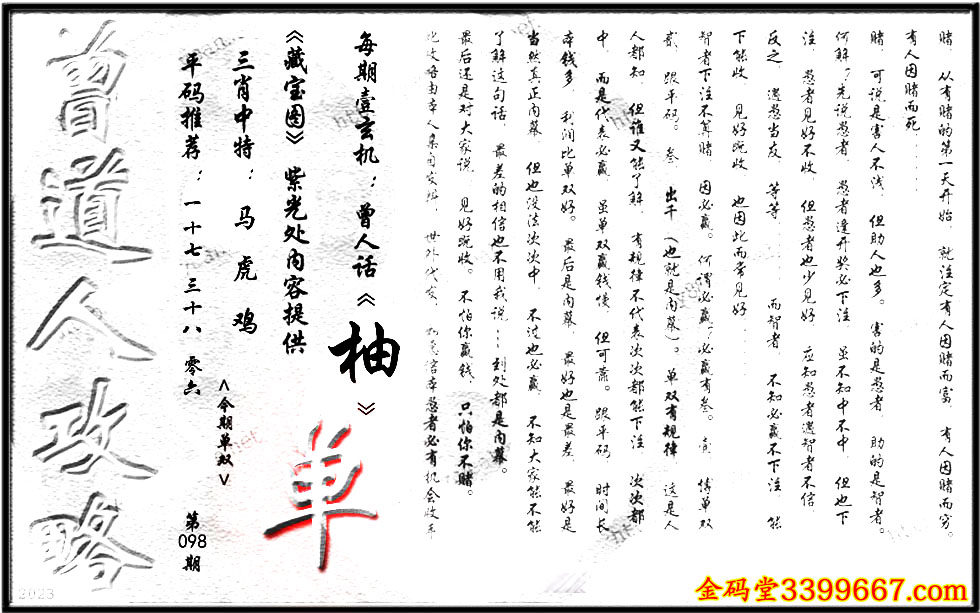 赌，从有赌的第一天开始，就注定有人因赌而富，有人因赌而穷。
有人因赌而死……
赌，可说是害人不浅，但助人也多。害的是愚者，助的是智者。
何解？先说愚者，愚者逢开奖必下注，虽不知中不中，但也下
注，愚者见好不收，但愚者也少见好，应知愚者遇智者不信
反之，遇愚当友，等等……而智者，不知必赢不下注，能
下能收，见好就收，也因此而常见好……
智者下注不算赌，因必赢。何谓必赢，必赢有叁。壹，博单双
贰，跟平码。叁，出千（也就是内幕）。单双有规律，这是人
人都知，但谁又能了解，有规律不代表次次都能下注，次次都
中，而是代表必赢，虽单双赢钱慢，但可靠。跟平码，时间长
本钱多，利润比单双好。最后是内幕，最好也是最差，最好是
当然真正内幕，但也没法次次中，不过也必赢，不知大家能不能
了解这句话，最差的相信也不用我说……到处都是内幕。
最后还是对大家说，见好就收。不怕你赢钱，只怕你不赌。
每期壹玄机：曾人话《柚》
《藏宝图》紫光处内容提供
三肖中特：马 虎 鸡
平码推荐：一十七 三十八 零六
<今期单双>
单
第
098
期
曾道人攻略
2023
金码堂3399667.com